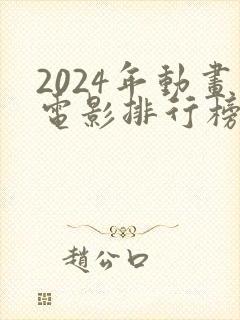 2024年動畫
電影排行榜
趙公口